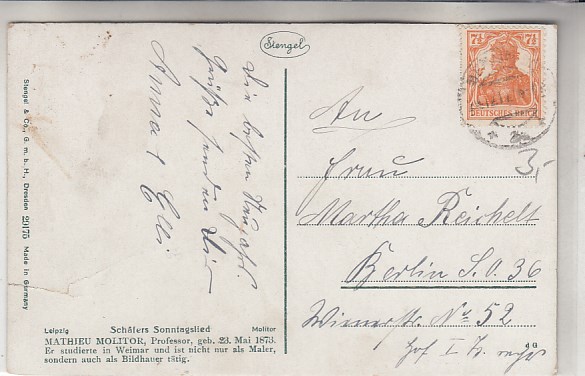 Stengel
7½ 7½
DEUTSCHES REICH
Die besten Neujahrs
Grüße senden Dir
Anna & Elli
An
3,-
Frau
Martha Reichelt
Berlin S.O. 36
Wienerstr. No 52
Hof I Tr. rechts
Stengel & Co., G. m. b. H., Dresden 29175 Made in Germany
Leipzig Schäfers Sonntagslied Molitor
MATHIEU MOLITOR, Professor, geb. 23. Mai 1873.
Er studierte in Weimar und ist nicht nur als Maler,
sondern auch als Bildhauer tätig.